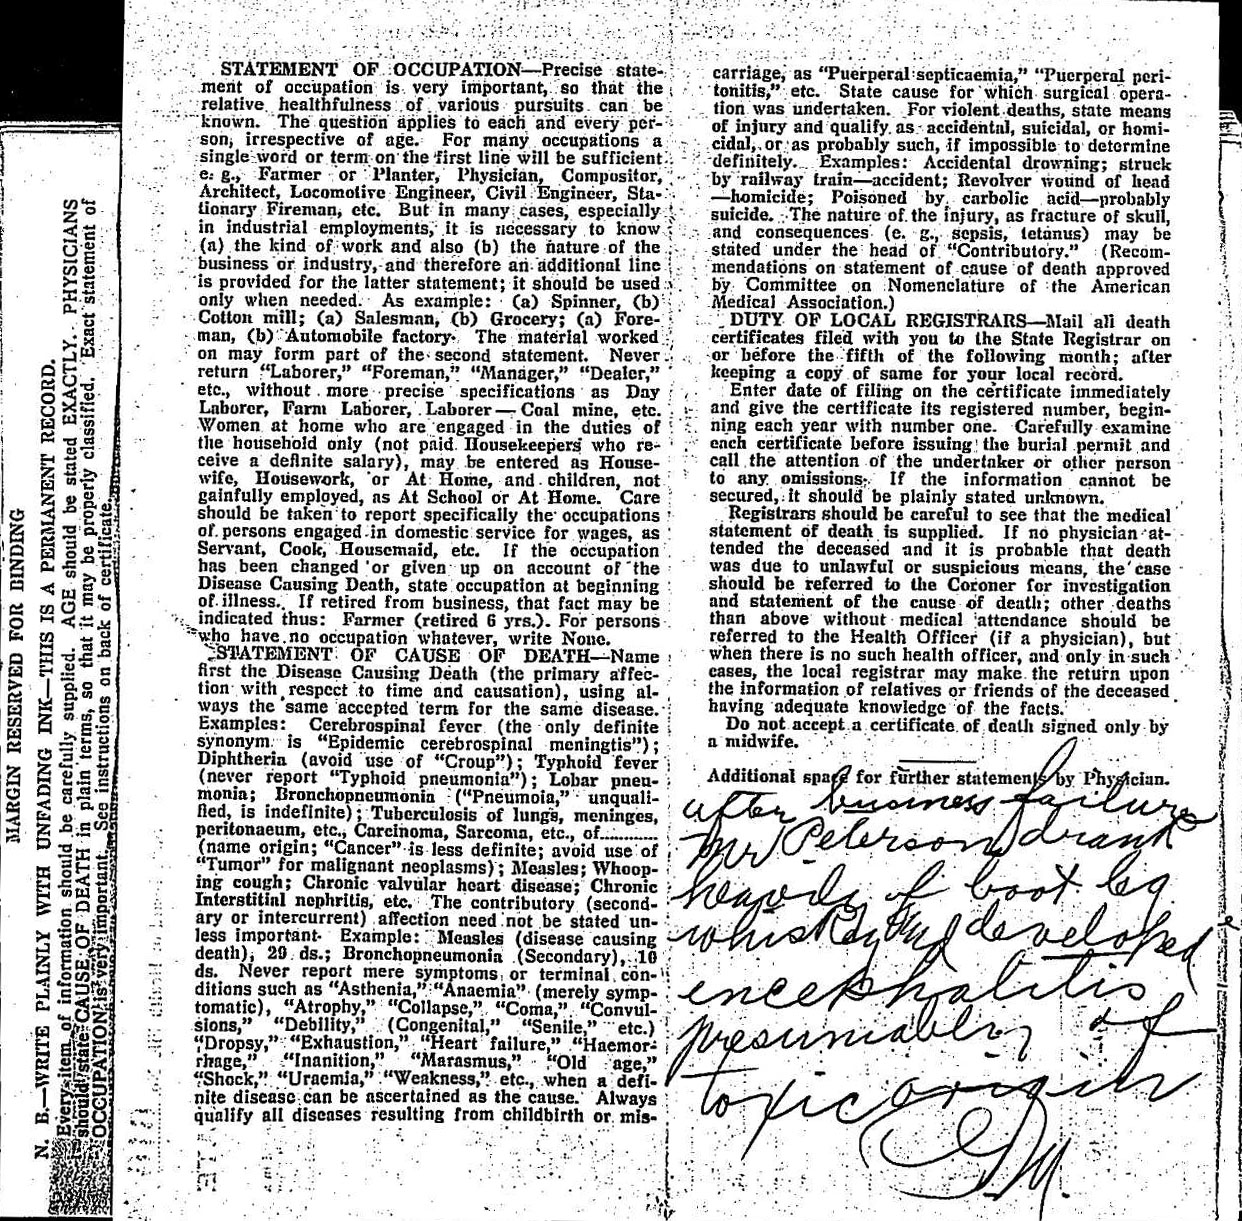 MARGIN RESERVED FOR BINDING
N. B.—WRITE PLAINLY WITH UNFADING INK—THIS IS A PERMANENT RECORD.
Every item of information should be carefully supplied. AGE should be stated EXACTLY. PHYSICIANS
should state CAUSE OF DEATH in plain terms, so that it may be properly classified. Exact statement of
OCCUPATION is very important. See instructions on back of certificate.
STATEMENT OF OCCUPATION—Precise state-
ment of occupation is very important, so that the
relative healthfulness of various pursuits can be
known. The question applies to each and every per-
son, irrespective of age. For many occupations a
single word or term on the first line will be sufficient
e. g., Farmer or Planter, Physician, Compositor,
Architect, Locomotive Engineer, Civil Engineer, Sta-
tionary Fireman, etc. But in many cases, especially
in industrial employments, it is necessary to know
(a) the kind of work and also (b) the nature of the
business or industry, and therefore an additional line
is provided for the latter statement; it should be used
only when needed. As example: (a) Spinner, (b)
Cotton mill; (a) Salesman, (b) Grocery; (a) Fore-
man, (b) Automobile factory. The material worked
on may form part of the second statement. Never
return "Laborer," "Foreman," "Manager," "Dealer,"
etc., without more precise specifications as Day
Laborer, Farm Laborer, Laborer—Coal mine, etc.
Women at home who are engaged in the duties of
the household only (not paid Housekeepers who re-
ceive a definite salary), may be entered as House-
wife, Housework, or At Home, and children, not
gainfully employed, as At School or At Home. Care
should be taken to report specifically the occupations
of persons engaged in domestic service for wages, as
Servant, Cook, Housemaid, etc. If the occupation
has been changed or given up on account of the
Disease Causing Death, state occupation at beginning
of illness. If retired from business, that fact may be
indicated thus: Farmer (retired 6 yrs.). For persons
who have no occupation whatever, write None.
STATEMENT OF CAUSE OF DEATH—Name
first the Disease Causing Death (the primary affec-
tion with respect to time and causation), using al-
ways the same accepted term for the same disease.
Examples: Cerebrospinal fever (the only definite
synonym is "Epidemic cerebrospinal meningtis");
Diphtheria (avoid use of "Croup"); Typhoid fever
(never report "Typhoid pneumonia"); Lobar pneu-
monia; Bronchopneumonia ("Pneumoia," unquali-
fied, is indefinite); Tuberculosis of lungs, meninges,
peritonaeum, etc., Carcinoma, Sarcoma, etc., of............
(name origin; "Cancer" is less definite; avoid use of
"Tumor" for malignant neoplasms); Measles; Whoop-
ing cough; Chronic valvular heart disease; Chronic
Interstitial nephritis, etc. The contributory (second-
ary or intercurrent) affection need not be stated un-
less important. Example: Measles (disease causing
death), 29 ds.; Bronchopneumonia (Secondary), 10
ds. Never report mere symptoms or terminal con-
ditions such as "Asthenia," "Anaemia" (merely symp-
tomatic), "Atrophy," "Collapse," "Coma," "Convul-
sions," "Debility," (Congenital," "Senile," etc.)
"Dropsy," "Exhaustion," "Heart failure," "Haemor-
rhage," "Inanition," "Marasmus," "Old age,"
"Shock," "Uraemia," "Weakness," etc., when a defi-
nite disease can be ascertained as the cause. Always
qualify all diseases resulting from childbirth or mis-
carriage, as "Puerperal septicaemia," "Puerperal peri-
tonitis," etc. State cause for which surgical opera-
tion was undertaken. For violent deaths, state means
of injury and qualify as accidental, suicidal, or homi-
cidal, or as probably such, if impossible to determine
definitely. Examples: Accidental drowning; struck
by railway train—accident; Revolver wound of head
—homicide; Poisoned by carbolic acid—probably
suicide. The nature of the injury, as fracture of skull,
and consequences (e. g., sepsis, tetanus) may be
stated under the head of "Contributory." (Recom-
mendations on statement of cause of death approved
by Committee on Nomenclature of the American
Medical Association.)
DUTY OF LOCAL REGISTRARS—Mail all death
certificates filed with you to the State Registrar on
or before the fifth of the following month; after
keeping a copy of same for your local record.
Enter date of filing on the certificate immediately
and give the certificate its registered number, begin-
ning each year with number one. Carefully examine
each certificate before issuing the burial permit and
call the attention of the undertaker or other person
to any omissions. If the information cannot be
secured, it should be plainly stated unknown.
Registrars should be careful to see that the medical
statement of death is supplied. If no physician at-
tended the deceased and it is probable that death
was due to unlawful or suspicious means, the case
should be referred to the Coroner for investigation
and statement of the cause of death; other deaths
than above without medical attendance should be
referred to the Health Officer (if a physician), but
when there is no such health officer, and only in such
cases, the local registrar may make the return upon
the information of relatives or friends of the deceased
having adequate knowledge of the facts.
Do not accept a certificate of death signed only by
a midwife.
Additional space for further statements by Physician.
after business failure
Mr Peterson drank
heavily of boot leg
whiskey and developed
encephalitis
presumably of
toxic origin